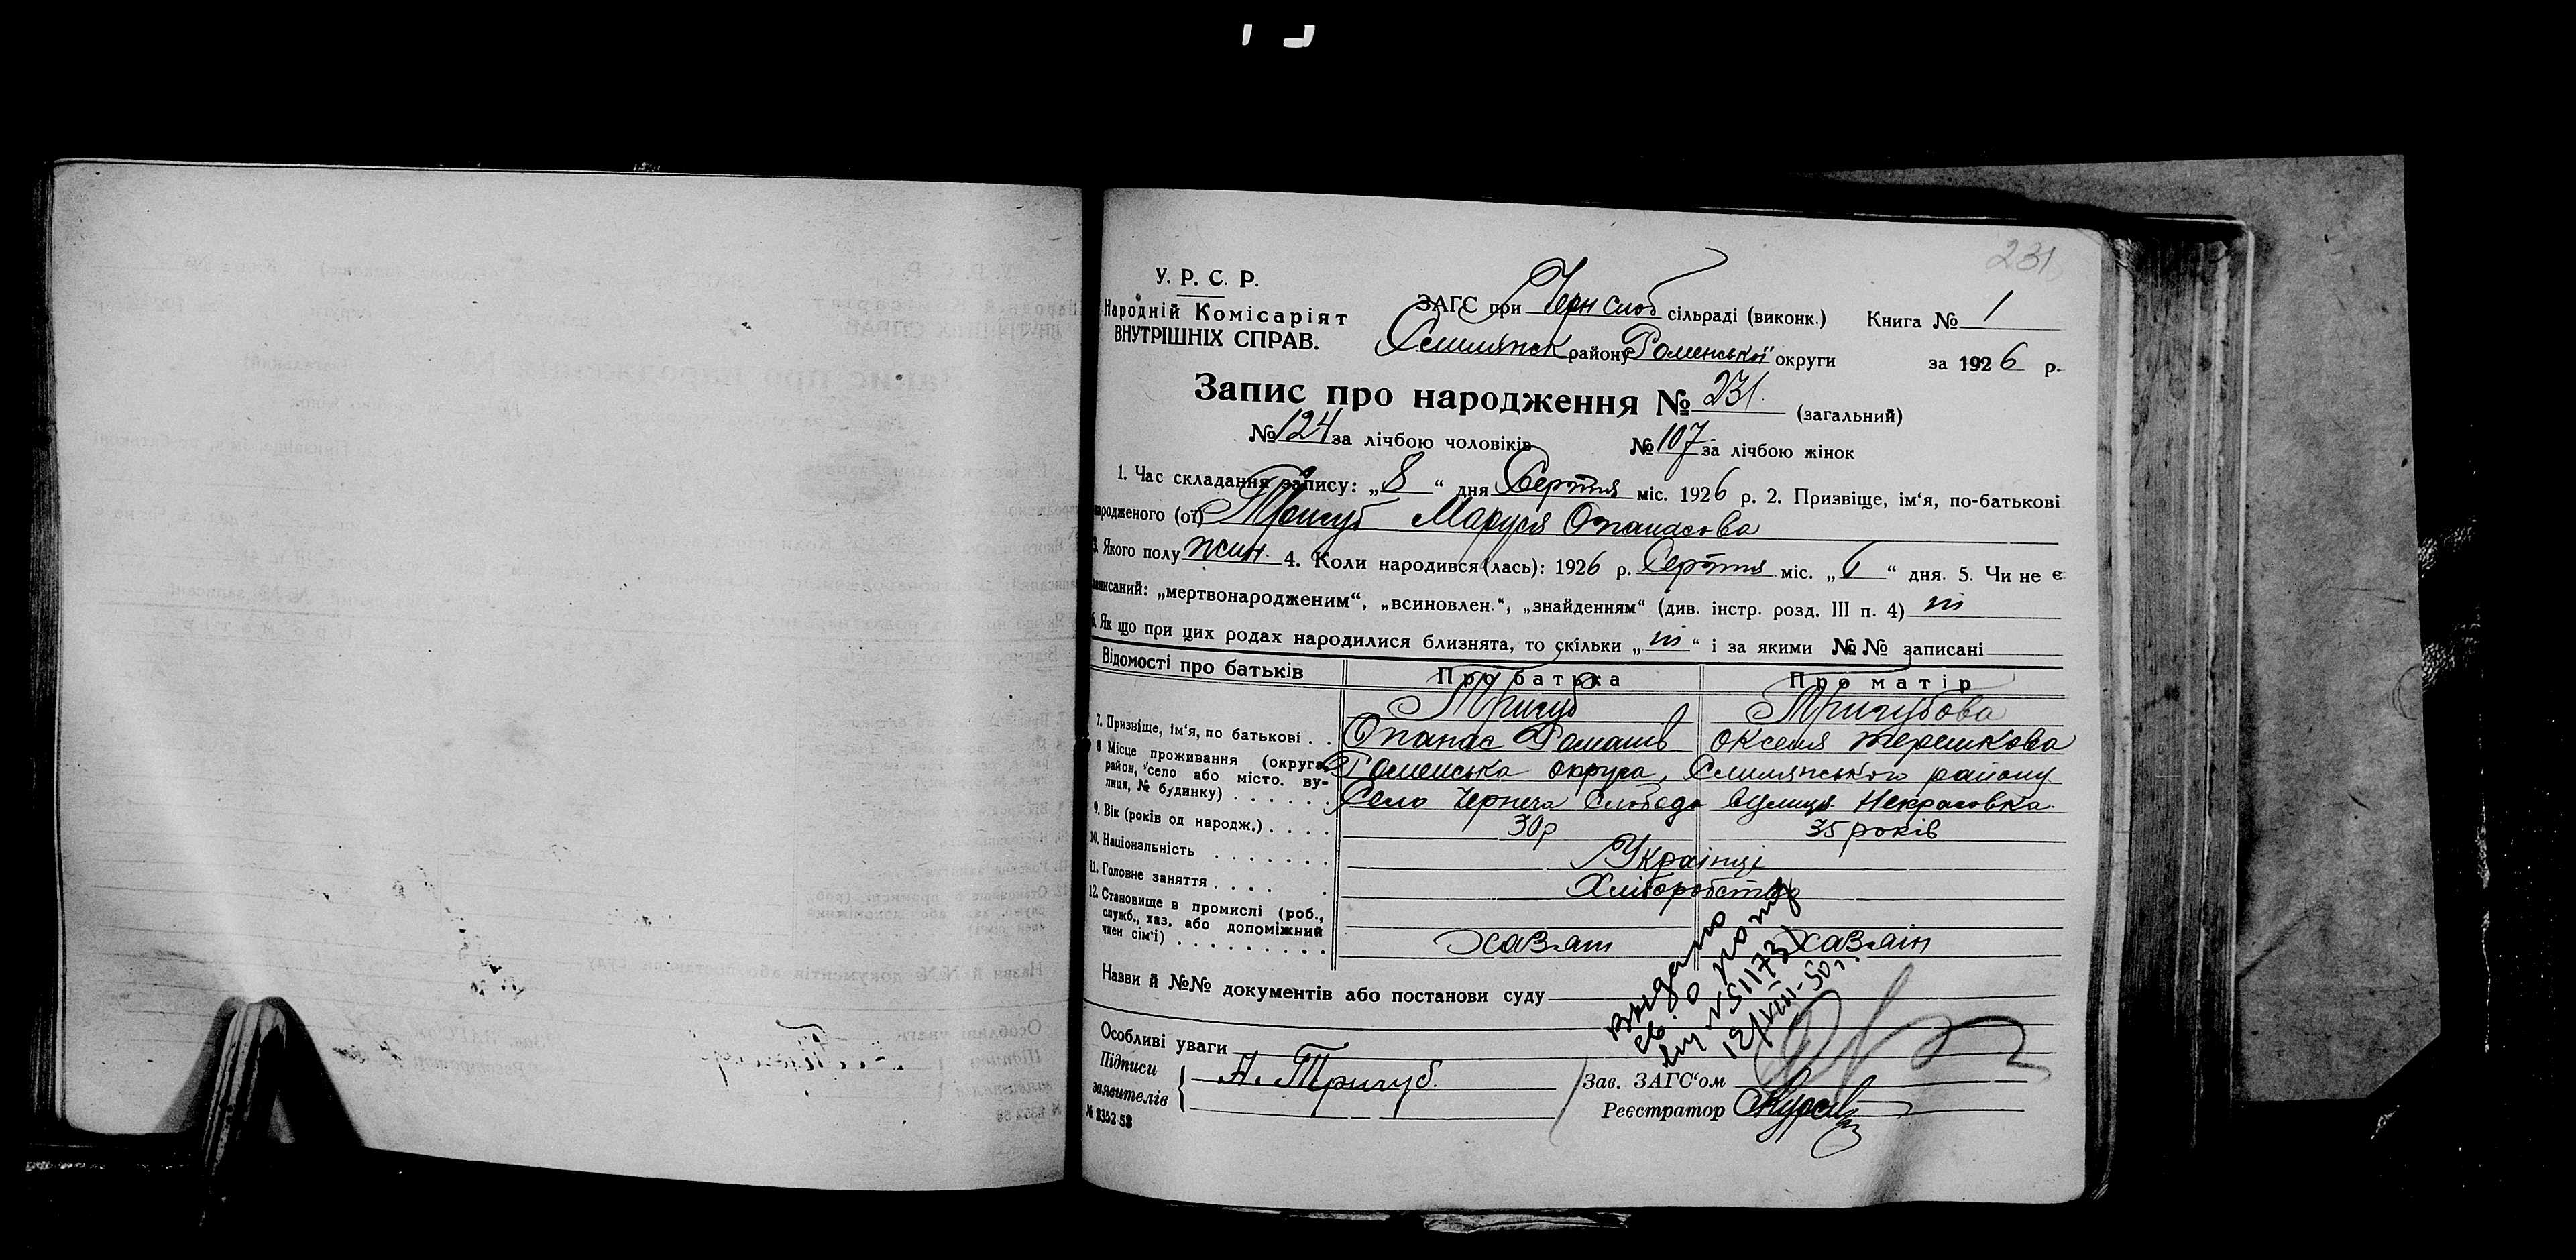 231
У. Р. С. Р.
Народній Комісаріят
ВНУТРІШНІХ СПРАВ.
ЗАГС при Черн слоб сільраді (виконк.) Книга № 1
Смілянськ району Роменської округи за 1926 р.
Запис про народження № 231. (загальний)
№ 124 за лічбою чоловіків № 107 за лічбою жінок
1. Час складання запису: „8“ дня Серпня міс. 1926 р. 2. Призвіще, ім‘я, по-батькові
народженого (ої) Тригуб Маруся Опанасова
3. Якого полу жін. 4. Коли народився (лась): 1926 р. Серпня міс. „6“ дня. 5. Чи не є
записаний: „мертвонародженим“, „всиновлен.“, „знайденням“ (див. інстр. розд. III п. 4) ні
6. Як що при цих родах народилися близнята, то скільки „ні“ і за якими №№ записані
Відомості про батьків Про батька Про матір
Тригуб Тригубова
7. Призвіще, ім‘я, по батькові . . Опанас Романів Оксеня Терешкова
8 Місце проживання (округа, район, село або місто. вулиця, № будинку) . . . . . .
Роменська округа, Смілянського району
Село Чернеча Слобода вулиця Некрасовка
9. Вік (років од народж.) . . . . 30 р 35 років
10. Національність . . . . . . . Українці
11. Головне заняття . . . . . Хліборобство
12. Становище в промислі (роб.,
служб., хаз. або допоміжний
член сім‘ї) . . . . . . . . . Хазяін Хазяін
Назви й №№ документів або постанови суду
видано
св. о рожд
13/VIII-50г.
Особливі уваги
Підписи
заявителів
А. Тригуб.
Зав. ЗАГС‘ом
Реєстратор
№ 8352-58